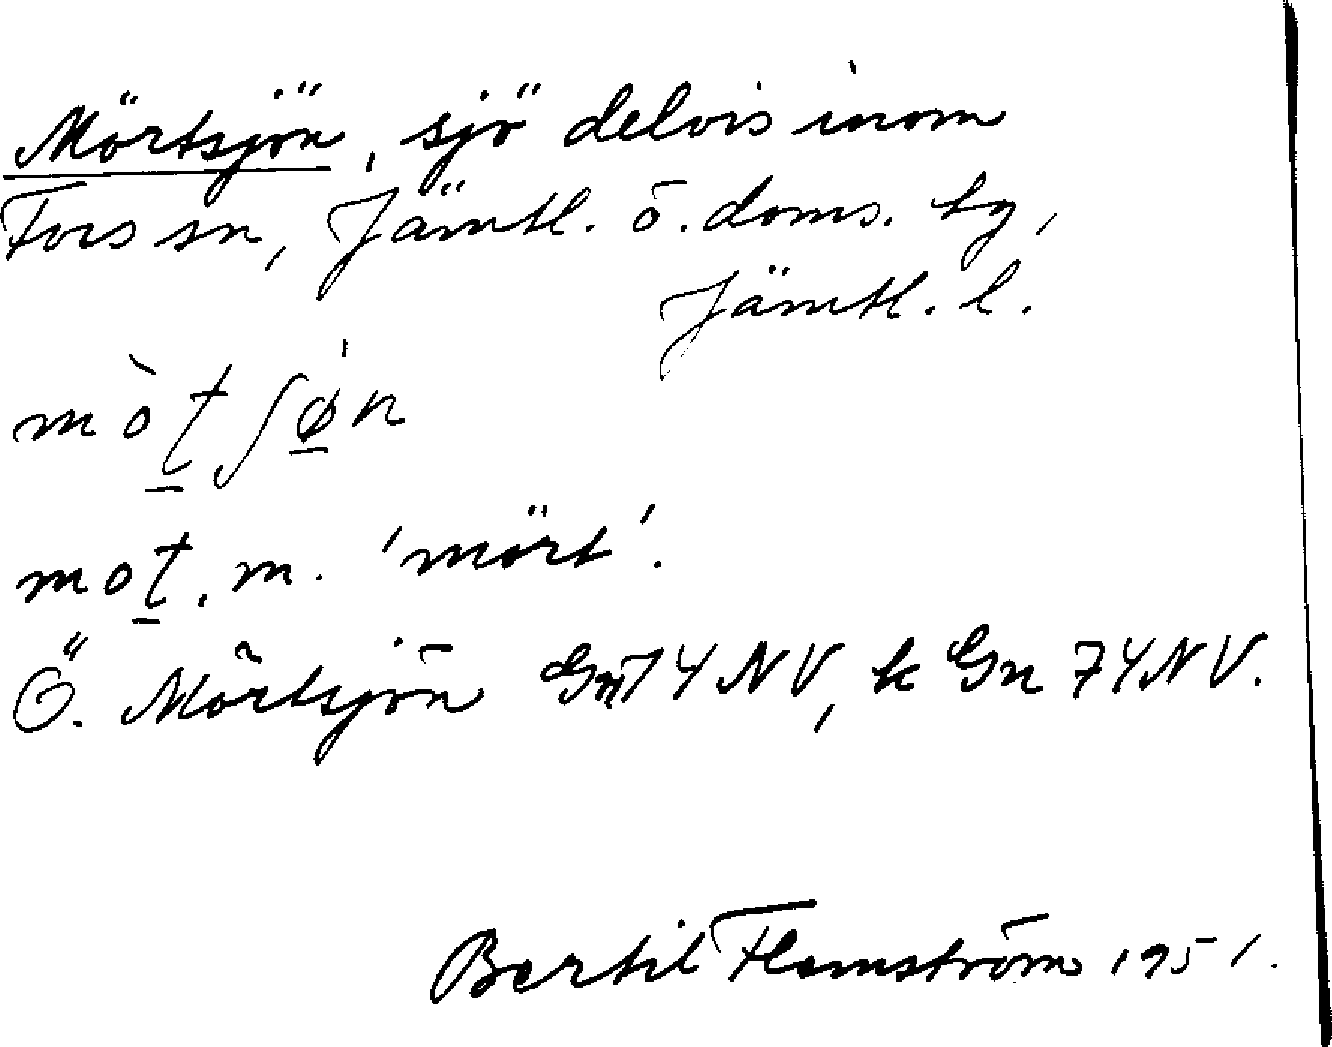 Mörtsjön, sjö delvis inom
Fors sn, Jämtl. ö. doms. tg,
Jämtl. l.
mòt̲ʃǿ̲n
mot̲. m. 'mört'.
Ö. Mörtsjön Gm74NV, k Gn 74NV.
Bertil Flemström 1951.